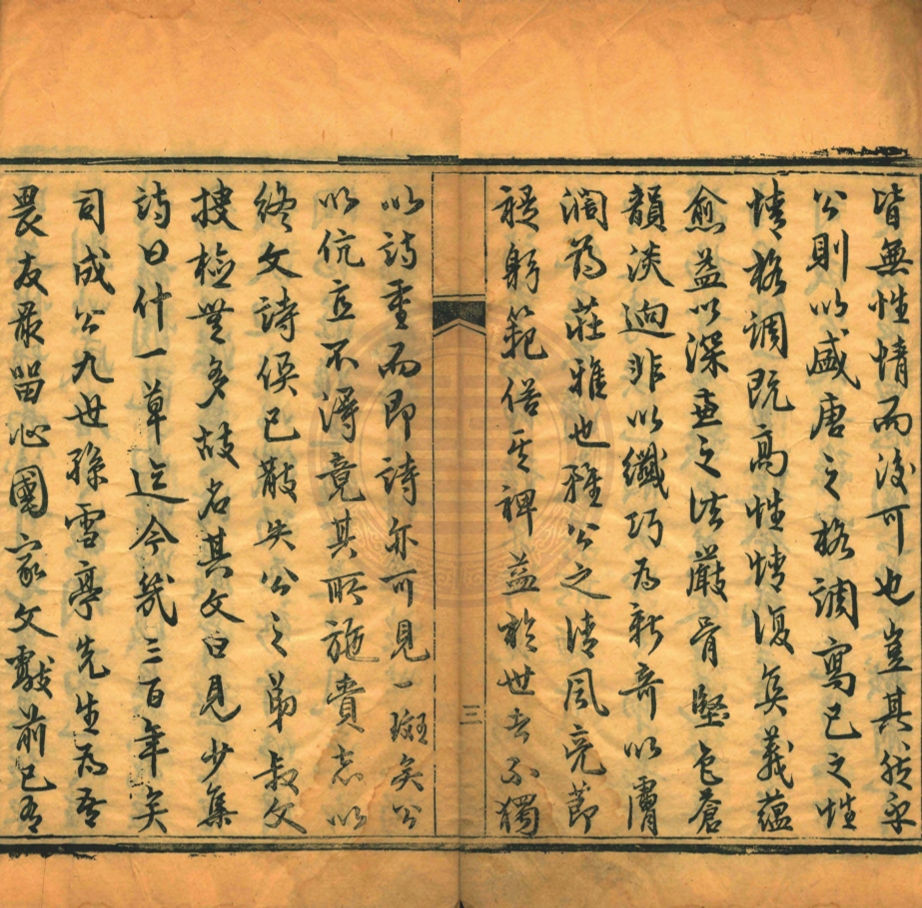 皆無性情而後可也豈其然乎
公則以盛唐之格調寫己之性
情格調既高性情復真義蘊
愈益以深重之法嚴骨堅色蒼
韻淡逈非以纖巧為新奇以膚
濶為莊雅也雅公之清風亮節
褆躬範俗其裨益於世者不獨
三
以詩重而即詩亦可見一斑矣公
以伉直不得竟其所施賫志以
終文詩俟已散失公之弟叔文
搜檢無多故名其文曰見少集
詩曰什一草迄今幾三百年矣
司成公九世孫雪亭先生為吾
畏友最留心國家文獻前已為